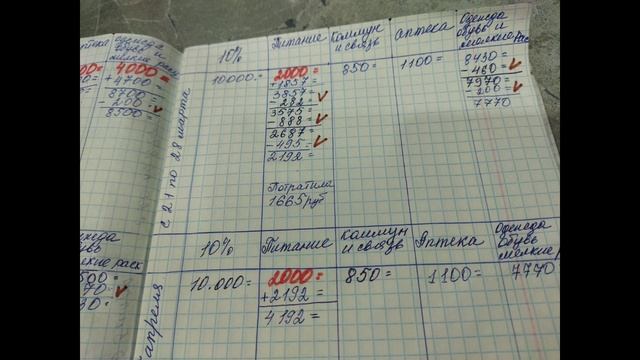 Одежда
обувь и
мелкие расх
4000=
+4700=
8700=
- 200=
8500=
с 21 по 28 марта
10%
10000=
Питание
2000=
+1857=
3857=
- 282=
3575=
- 888=
2687=
- 495=
2192=
Потратили
1665руб
Коммун
и связь
850=
Аптека
1100=
Одежда
обувь и
мелкие рас
8430=
- 460=
7970=
- 200=
7770
апреля
10%
10.000=
Питание
2000=
+2192=
4192=
Коммун
и связь
850=
Аптека
1100=
Одежда
обувь
мелкие
7770